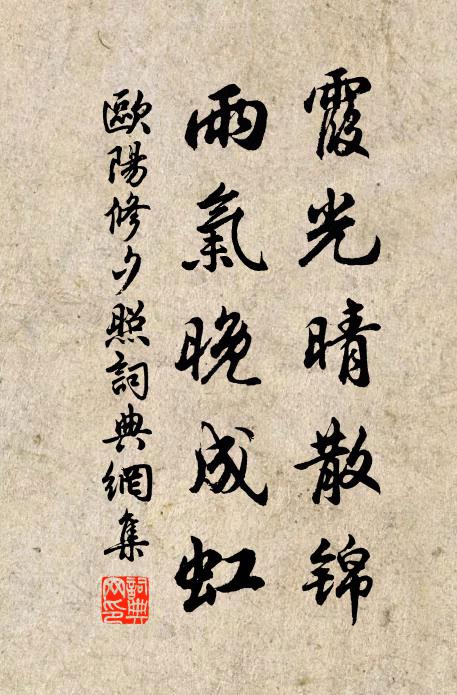 霞光晴散锦
雨氣晚成虹
歐陽修夕照詞典網集
詞典網印